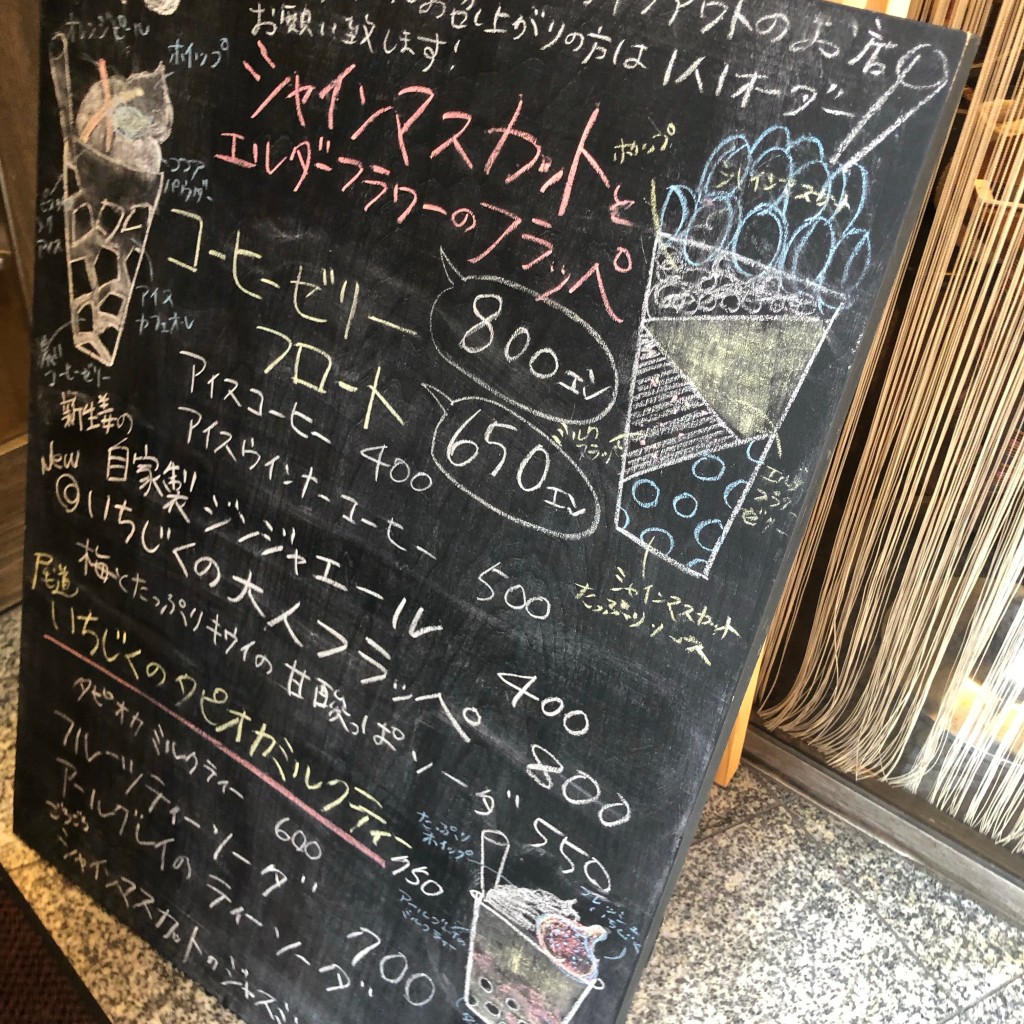 お召し上がりの方は1人1オーダー
お願い致します!
シャインマスカットと
エルダーフラワーのフラッペ
800エン
コーヒーゼリー
フロート
650エン
アイスコーヒー 400
アイスウインナーコーヒー 500
新生姜の
自家製ジンジャエール 400
New
◎いちじくの大人フラッペ 800
梅とたっぷりキウイの甘酸っぱソーダ 550
尾道
いちじくのタピオカミルクティー 750
タピオカミルクティー 600
フルーツティーソーダ 700
アールグレイのティーソーダ
シャインマスカットのジャスミン
オレンジピール
ホイップ
ココア
パウダー
アイス
カフェオレ
コーヒーゼリー
ホイップ
シャインマスカット
ミルク
フラッペ
シャインマスカット
たっぷりソース
たっぷり
ホイップ